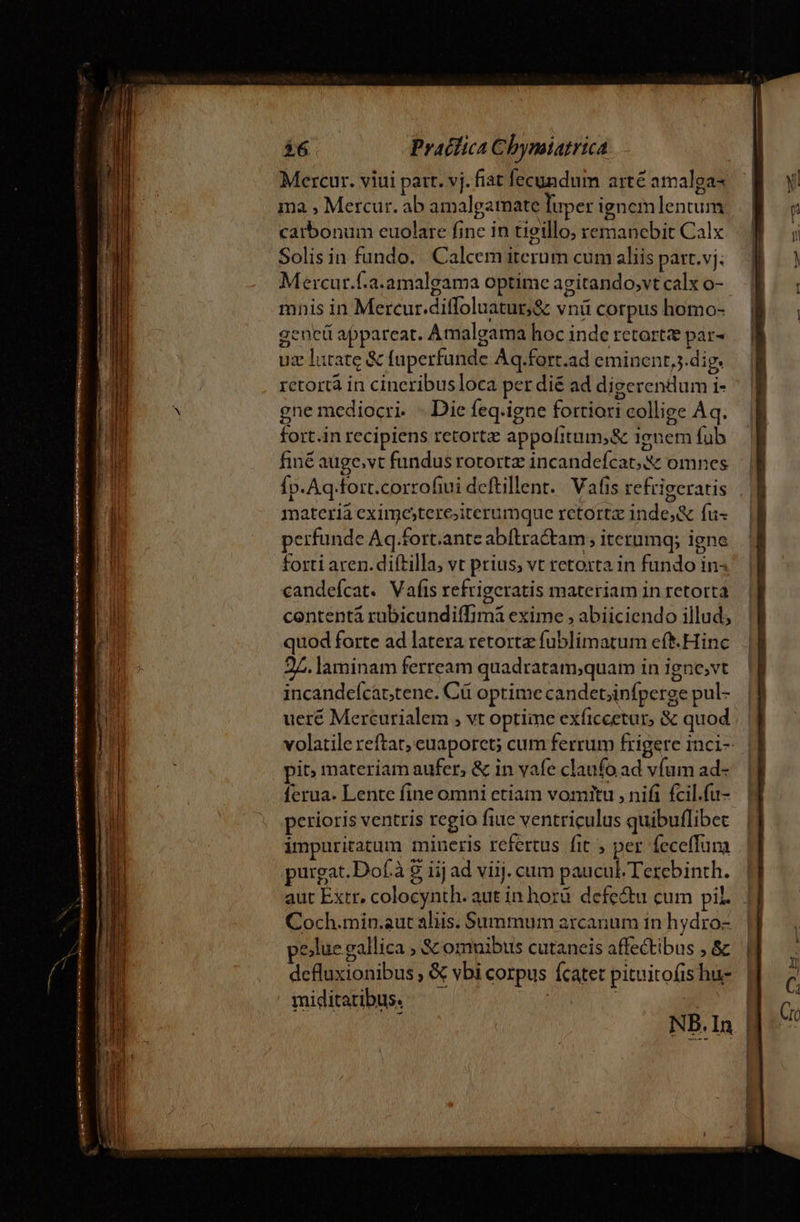 16 Practica Chymiatrica
Mercur. viui part. vj. fiat ſecundum artē amalga-
ma, Mercur. ab amalgamate ſuper ignem lentum
carbonum euolare ſine in tigillo, remanebit Calx
Solis in fundo. Calcem iterum cum aliis part. vj.
Mercur. ſ. a. amalgama optime agitando, vt calx o-
mnis in Mercur. diſſoluatur, & vnū corpus homo-
geneū appareat. Amalgama hoc inde retortæ par-
uæ lutatę & ſuperfunde Aq. fort. ad eminent, 3. dig.
retortā in cineribus loca per diē ad digerendum i-
gne mediocri. Die ſeq. igne fortiori collige Aq.
fort. in recipiens retortæ appoſitum, & ignem ſub
finē auge, vt fundus rotortæ incandeſcat, & omnes
ſp. Aq. fort. corroſiui deſtillent. Vaſis refrigeratis
materiā exime, tere, iterumque retortæ inde, & ſu-
perfunde Aq. fort. ante abſtractam, iterumq; igne
forti aren. diſtilla, vt prius, vt retorta in fundo in-
candeſcat. Vaſis refrigeratis materiam in retorta
contentā rubicundiſſimā exime, abiiciendo illud,
quod forte ad latera retortæ ſublimatum eſt. Hinc
♃. laminam ferream quadratam, quam in igne, vt
incandeſcat, tene. Cū optime candet, inſperge pul-
uerē Mercurialem, vt optime exſiccetur, & quod
volatile reſtat, euaporet; cum ferrum frigere inci-
pit, materiam aufer, & in vaſe clauſo ad vſum ad-
ſerua. Lente ſine omni etiam vomitu, niſi ſcil. ſu-
perioris ventris regio ſiue ventriculus quibuſlibet
impuritatum mineris refertus ſit, per ſeceſſum
purgat. Doſ. à ℥ iij ad viij. cum paucul. Terebinth.
aut Extr. colocynth. aut in horū defectu cum pil.
Coch. min. aut aliis. Summum arcanum in hydro-
pe, lue gallica, & omnibus cutaneis affectibus, &
defluxionibus, & vbi corpus ſcatet pituitoſis hu-
miditatibus.
NB. In